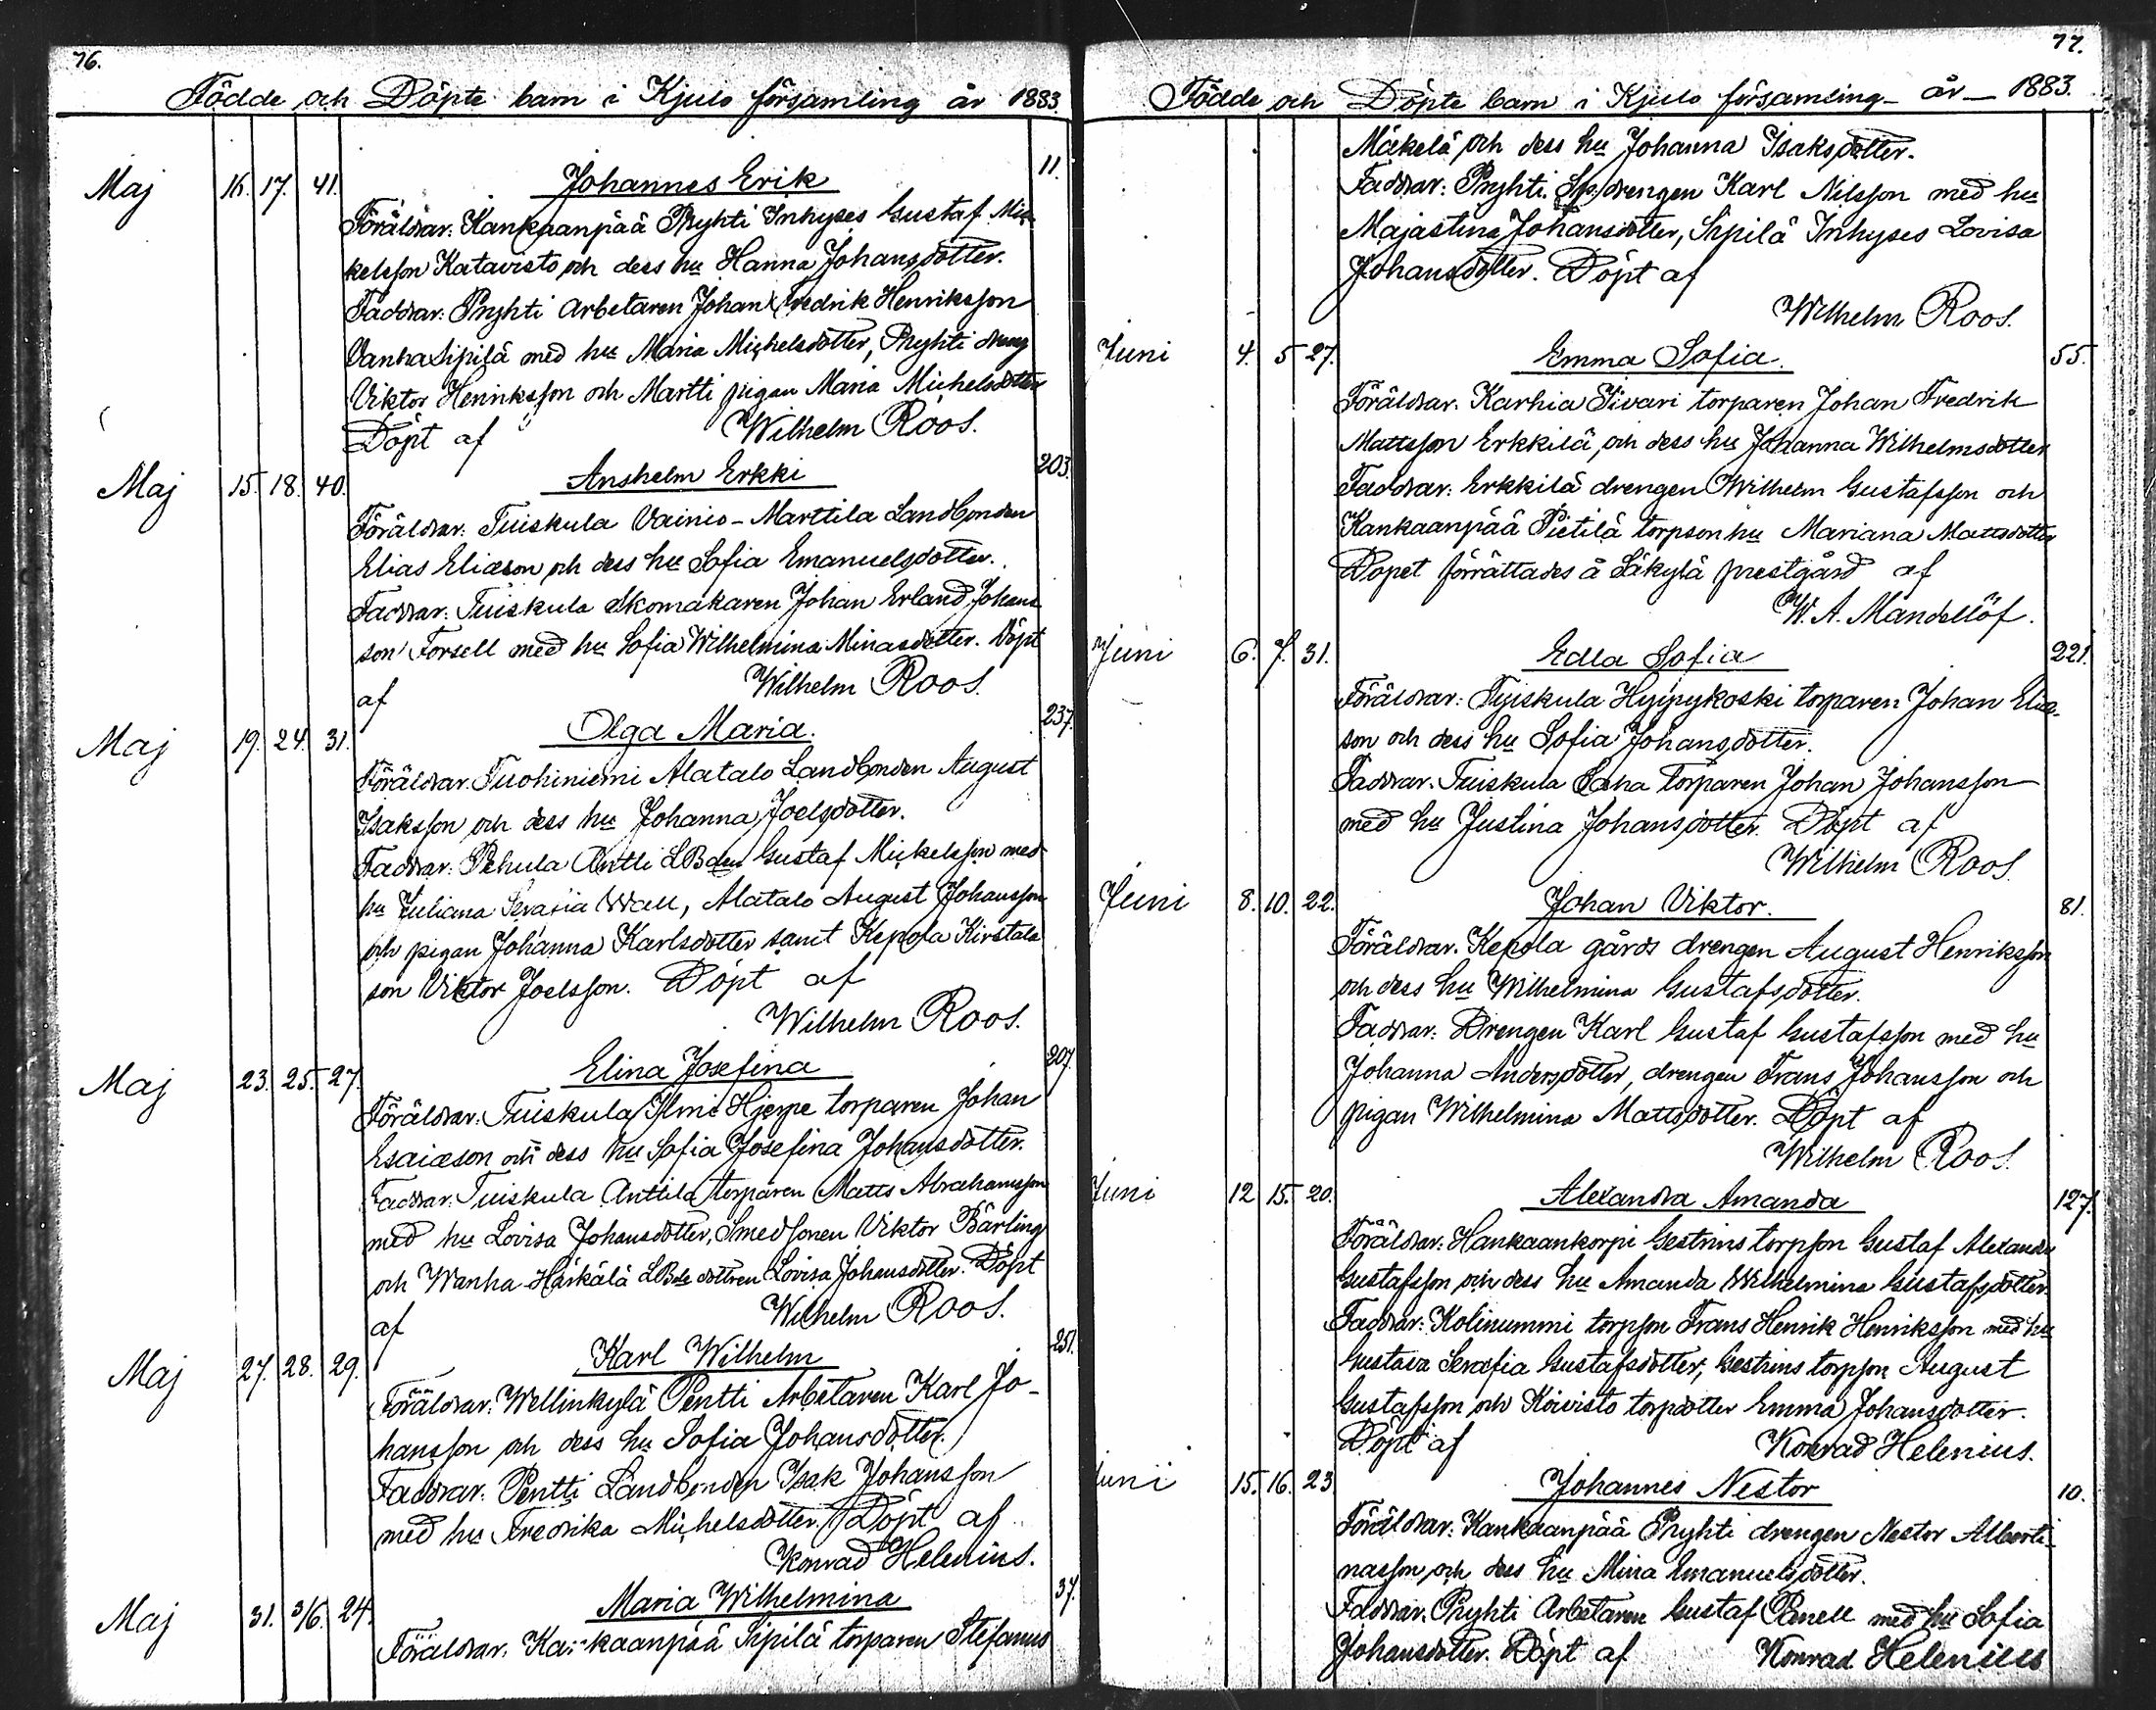 76.
Födde och Döpte barn i Kjulo församling år 1883.
Maj 16. 17. 41. Johannes Erik 11.
Föräldrar: Kankaanpää Pryhti Inhyses Gustaf Mic-
kelsson Katavisto och dess hu Hanna Johansdotter.
Faddrar: Pryhti Arbetaren Johan Fredrik Henriksson
Vanha Sipilä med hu Maria Michelsdotter, Pryhti dreng
Viktor Henriksson och Martti pigan Maria Michelsdotter
Döpt af Wilhelm Roos.
Maj 15. 18. 40. Anshelm Erkki 203.
Föräldrar: Tuiskula Vainio-Marttila Landbonden
Elias Eliæson och dess hu Sofia Emanuelsdotter.
Faddrar: Tuiskula Skomakaren Johan Erland Johans-
son Forsell med hu Sofia Wilhelmina Minasdotter. Döpt
af Wilhelm Roos.
Maj 19. 24. 31. Olga Maria. 237.
Föräldrar. Tuohiniemi Alatalo Landbonden August
Isaksson och dess hu Johanna Joelsdotter.
Faddrar: Pehula Antti LBden Gustaf Mickelsson med
hu Juliana Serafia Wall, Alatalo August Johansson
och pigan Johanna Karlsdotter samt Kepola Kirstala
son Viktor Joelsson. Döpt af
Wilhelm Roos.
Maj 23. 25. 27. Elina Josefina 207.
Föräldrar: Tuiskula Ilmi Hjerpe torparen Johan
Esaiæson och dess hu Sofia Josefina Johansdotter.
Faddrar: Tuiskula Anttila torparen Matts Abrahamsson
med hu Lovisa Johansdotter, Smedsonen Viktor Bärling
och Wanha-Häkälä LBde dottren Lovisa Johansdotter. Döpt
af Wilhelm Roos.
Maj 27. 28. 29. Karl Wilhelm 251.
Föräldrar: Wellinkylä Pentti Arbetaren Karl Jo-
hansson och dess hu Sofia Johansdotter.
Faddrar: Pentti Landbonden Isak Johansson
med hu Fredrika Michelsdotter. Döpt af
Konrad Helenius.
Maj 31. 3/6. 24. Maria Wilhelmina 37.
Föräldrar. Kankaanpää Sipilä torparen Stefanus
77.
Födde och Döpte barn i Kjulo församling år 1883.
Mäkelä och dess hu Johanna Isaksdotter.
Faddrar: Pryhti Sp. drengen Karl Nilsson med hu
Majastina Johansdotter, Sipilä Inhyses Lovisa
Johansdotter. Döpt af
Wilhelm Roos.
Juni 4. 5 27. Emma Sofia. 55.
Föräldrar. Karhia Iivari torparen Johan Fredrik
Mattsson Erkkilä, och dess hu Johanna Wilhelmsdotter
Faddrar: Erkkilä drengen Wilhelm Gustafsson och
Kankaanpää Pietilä torpson hu Mariana Mattsdotter
Dopet förrättades å Säkylä prestgård af
W. A. Mandellöf.
Juni 6. 7. 31. Edla Sofia 221.
Föräldrar: Tuiskula Hyypykoski torparen Johan Elia-
son och dess hu Sofia Johansdotter.
Faddrar. Tuiskula Saha Torparen Johan Johansson
med hu Justina Johansdotter. Döpt af
Wilhelm Roos.
Juni 8. 10. 22. Johan Viktor. 81.
Föräldrar. Kepola gårds drengen August Henriksson
och dess hu Wilhelmina Gustafsdotter.
Faddrar: Drengen Karl Gustaf Gustafsson med hu
Johanna Andersdotter, drengen Frans Johansson och
pigan Wilhelmina Mattsdotter. Döpt af
Wilhelm Roos.
Juni 12 15. 20. Alexandra Amanda 127.
Föräldrar: Hankaankorpi Gestrins torpson Gustaf Alexander
Gustafsson och dess hu Amanda Wilhelmina Gustafsdotter.
Faddrar: Kolinummi torpson Frans Henrik Henriksson med hu
Gustava Serafia Gustafsdotter, Gestrins torpson August
Gustafsson och Koivisto torpdotter Emma Johansdotter.
Döpt af Konrad Helenius.
Juni 15. 16. 23. Johannes Nestor 10.
Föräldrar: Kankaanpää Pryhti drengen Nestor Alberti-
nasson och dess hu Mina Emanuelsdotter.
Faddrar. Pryhti Arbetaren Gustaf Panell med hu Sofia
Johansdotter. Döpt af Konrad Helenius